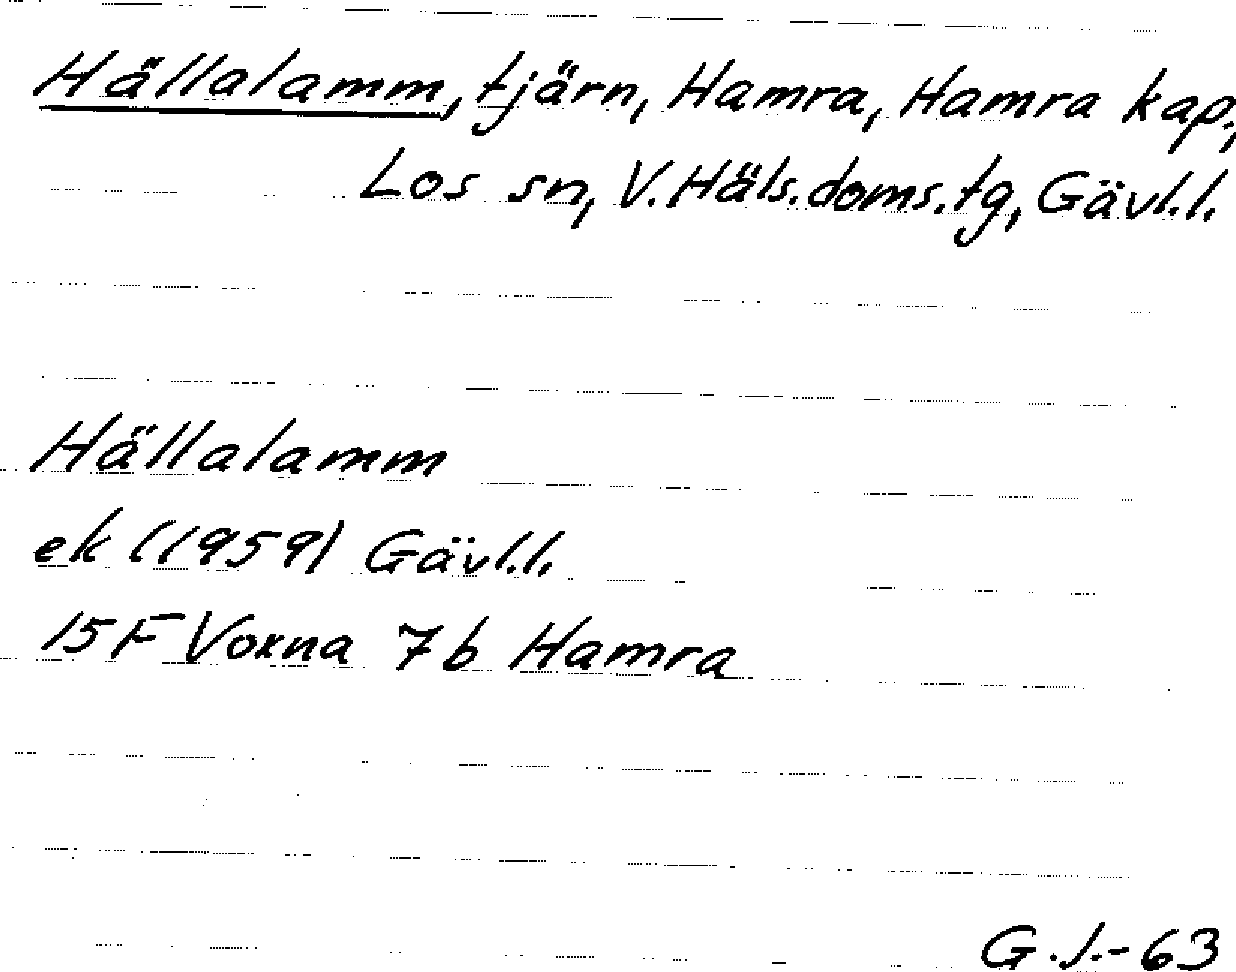 Hällalamm, tjärn, Hamra, Hamra kap.,
Los sn, V.Häls.doms.tg, Gävl.l.
Hällalamm
ek (1959) Gävl.l.
15F Voxna 7b Hamra
G.J.-63